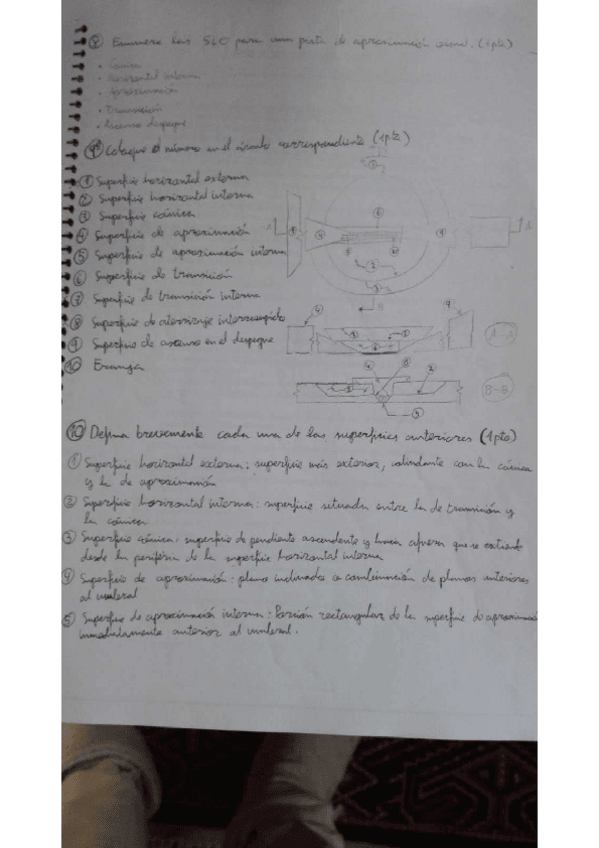 8 Enumere las SLO para una pista de aproximación visual. (1pto)
• Cónica
• Horizontal interna
• Aproximación
• Transición
• Ascenso despegue
9 Coloque el número en el círculo correspondiente (1pto)
① Superficie horizontal externa
② Superficie horizontal interna
③ Superficie cónica
④ Superficie de aproximación
⑤ Superficie de aproximación interna
⑥ Superficie de transición
⑦ Superficie de transición interna
⑧ Superficie de aterrizaje interrumpido
⑨ Superficie de ascenso en el despegue
⑩ Franja
A-A
B-B
⑩ Defina brevemente cada una de las superficies anteriores (1pto)
① Superficie horizontal externa: superficie más exterior, colindante con la cónica
y la de aproximación
② Superficie horizontal interna: superficie situada entre la de transición y
la cónica
③ Superficie cónica: superficie de pendiente ascendente y hacia afuera que se extiende
desde la periferia de la superficie horizontal interna
④ Superficie de aproximación: plano inclinado o combinación de planos anteriores
al umbral
⑤ Superficie de aproximación interna: Porción rectangular de la superficie de aproximación
inmediatamente anterior al umbral.